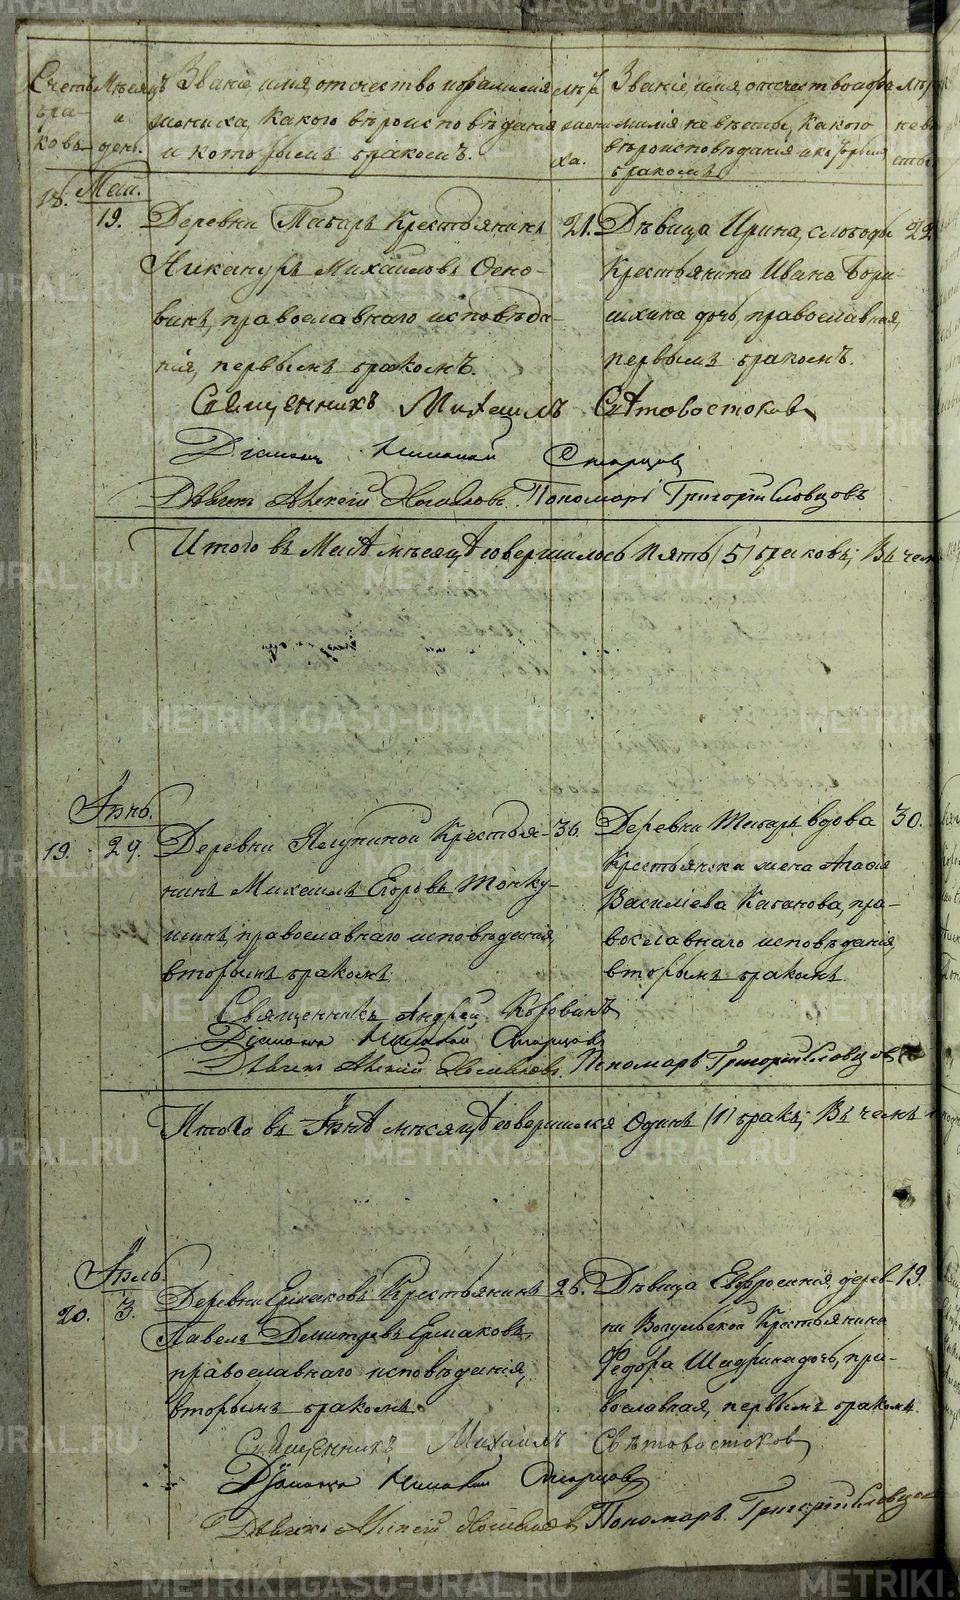 Счетъ бра- ковъ
Мѣсяцъ и день.
Званіе, имя, отчество и фамилія
жениха, какого вѣроисповѣданія
и которымъ бракомъ.
Лѣта жени- ха.
Званіе, имя, отчество и фа-
милія невѣсты, какого
вѣроисповѣданія и которымъ
бракомъ.
18. Маи.
19. Деревни Табаръ Крестьянинъ 21.
Никануръ Михаиловъ Осно-
винъ, православнаго исповѣда-
нія, первымъ бракомъ.
Дѣвица Ирина, слободы 22.
Крестьянина Ивана Бори-
шихина дочь, православная,
первымъ бракомъ.
Священникъ Михаилъ Свѣтовостоковъ
Діаконъ Николай Старцовъ
Дьячекъ Алексій Пономарь Григорій Словцовъ.
Итого въ Маіѣ мѣсяцѣ совершилось пять (5) браковъ; Въ чемъ
Іюнь.
19. 29. Деревни Ялуниной Крестья- 36.
нинъ Михаилъ Егоровъ Тонку-
шинъ, православнаго исповѣданія,
вторымъ бракомъ.
Деревни Табаръ вдова 30.
Крестьянска жена Агафія
Василіева Каганова, пра-
вославнаго исповѣданія,
вторымъ бракомъ.
Священникъ Андрей Коровинъ
Діаконъ Николай Старцовъ
Дьячекъ Алексій Пономарь Григорій Словцовъ
Итого въ Іюнѣ мѣсяцѣ совершился одинъ (1) бракъ; Въ чемъ
Іюль.
20. 3. Деревни Ермаковъ Крестьянинъ 26.
Павелъ Демитревъ Ермаковъ,
православнаго исповѣданія,
вторымъ бракомъ.
Дѣвица Евфросинія, дерев- 19.
ни Вогульской Крестьянина
Федора Шадрина дочь, пра-
вославная, первымъ бракомъ.
Священникъ Михаилъ Свѣтовостоковъ
Діаконъ Николай Старцовъ
Дьячекъ Алексій Пономарь Григорій Словцовъ
METRIKI.GASU-URAL.RU